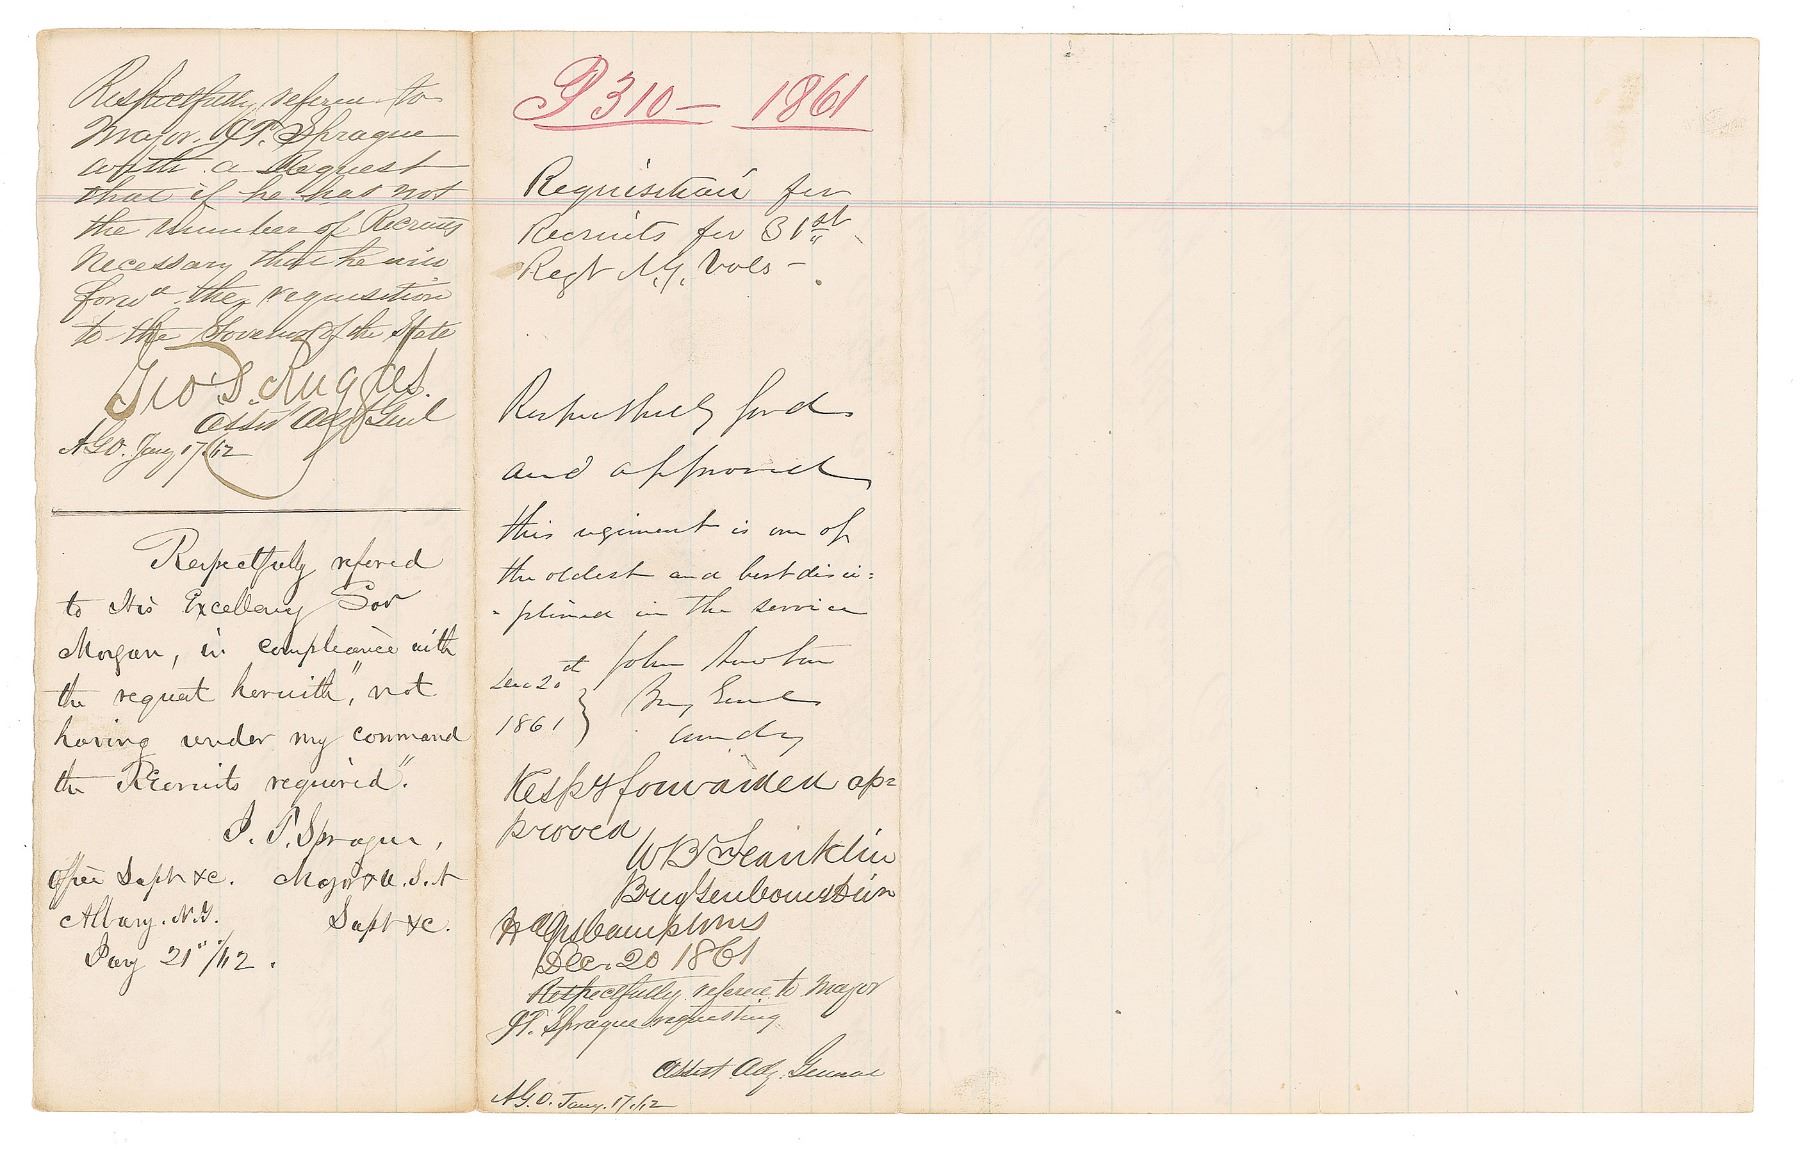 P 310 — 1861
Requisition for
Recruits for 31st
Regt N.Y. Vols —
Respectfully forwd
and approved
this regiment is one of
the oldest and best disci=
-plined in the service
John Newton
Dec 20th
1861
Brig Genl
Comdg
Respy forwarded ap=
proved
W B Franklin
Brig Gen Comd Divn
Dec. 20 1861
Respectfully referred to Major
J.T. Sprague requesting
Assist. Adj. General
A.G.O. Jany. 17./62
Respectfully referred to
Major J.T. Sprague
with a Request
that if he has not
the number of Recruits
Necessary that he will
forwd the requisition
to the Governor of the State
Geo D. Ruggles.
Assist Adjt Genl
A.G.O. Jany 17./62
Respectfully refered
to His Excellency Gov
Morgan, in compliance with
the request herewith, "not
having under my command
the Recruits required".
J. T. Sprague,
Office Supt &c. Major U.S.A
Albany. N.Y. Supt &c.
Jany 21"/62.